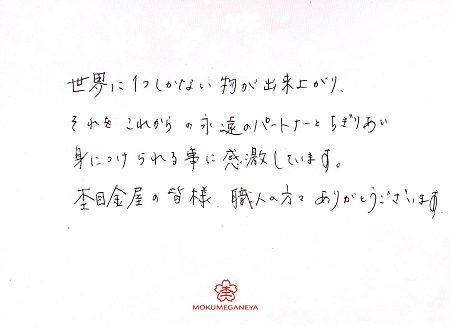 世界に1つしかない物が出来上がり、
それを これからの永遠のパートナーと ちぎりあい
身につけられる事に感激しています。
杢目金屋の皆様、職人の方々 ありがとうございます
MOKUMEGANEYA